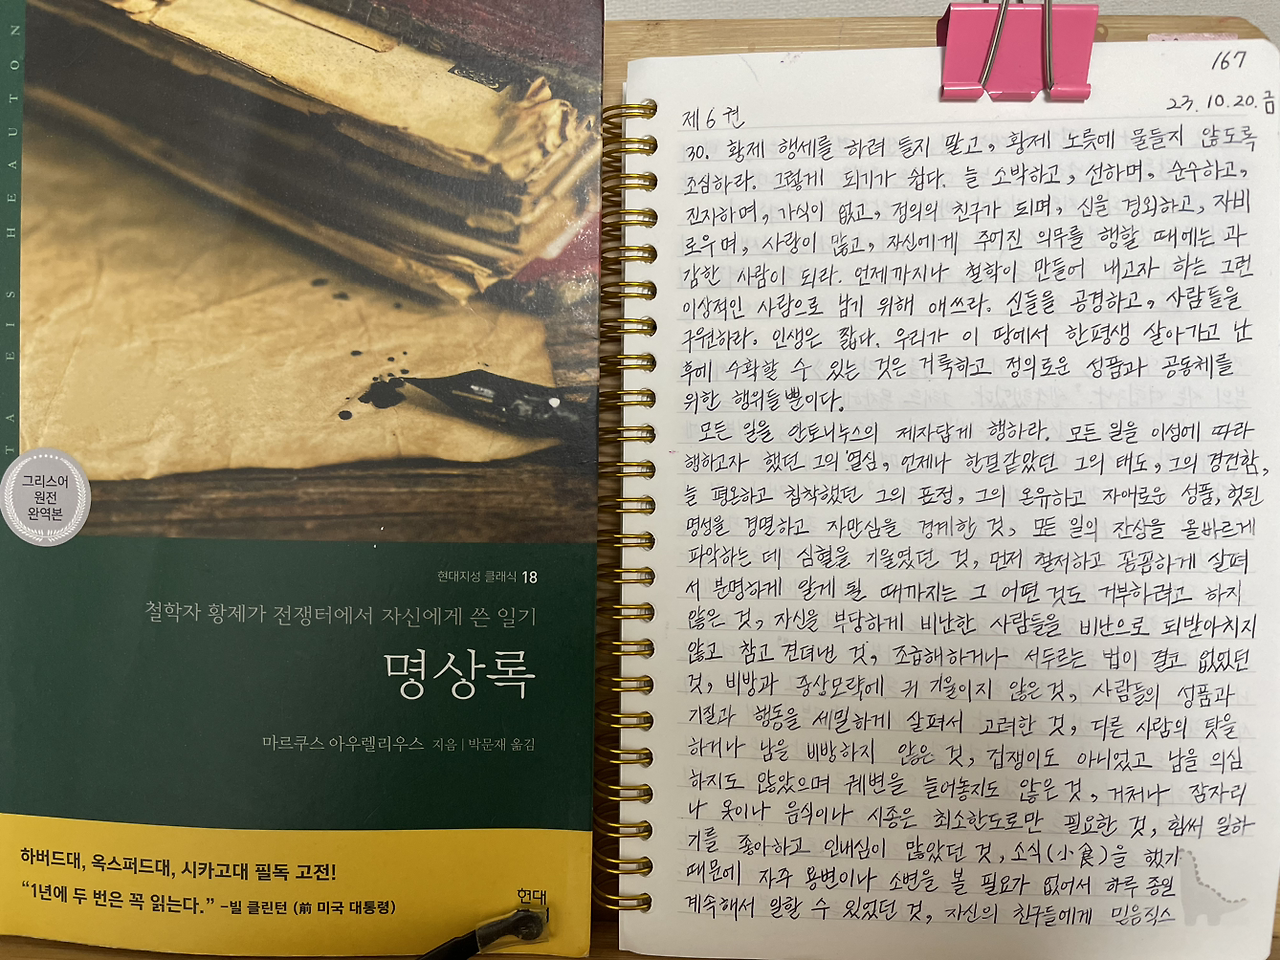 TA EIS HEAUTON
그리스어
원전
완역본
현대지성 클래식 18
철학자 황제가 전쟁터에서 자신에게 쓴 일기
명상록
마르쿠스 아우렐리우스 지음 | 박문재 옮김
하버드대, 옥스퍼드대, 시카고대 필독 고전!
“1년에 두 번은 꼭 읽는다.” –빌 클린턴 (前 미국 대통령)
현대
167
23. 10. 20. 금
제 6 권
30. 황제 행세를 하려 들지 말고, 황제 노릇에 물들지 않도록
조심하라. 그렇게 되기가 쉽다. 늘 소박하고, 선하며, 순수하고,
진지하며, 가식이 없고, 정의의 친구가 되며, 신을 경외하고, 자비
로우며, 사랑이 많고, 자신에게 주어진 의무를 행할 때에는 과
감한 사람이 되라. 언제까지나 철학이 만들어 내고자 하는 그런
이상적인 사람으로 남기 위해 애쓰라. 신들을 공경하고, 사람들을
구원하라. 인생은 짧다. 우리가 이 땅에서 한평생 살아가고 난
후에 수확할 수 있는 것은 거룩하고 정의로운 성품과 공동체를
위한 행위들뿐이다.
모든 일을 안토니누스의 제자답게 행하라. 모든 일을 이성에 따라
행하고자 했던 그의 열심, 언제나 한결같았던 그의 태도, 그의 경건함,
늘 평온하고 침착했던 그의 표정, 그의 온유하고 자애로운 성품, 헛된
명성을 경멸하고 자만심을 경계한 것, 모든 일의 진상을 올바르게
파악하는 데 심혈을 기울였던 것, 먼저 철저하고 꼼꼼하게 살펴
서 분명하게 알게 될 때까지는 그 어떤 것도 거부하려고 하지
않은 것, 자신을 부당하게 비난한 사람들을 비난으로 되받아치지
않고 참고 견뎌낸 것, 조급해하거나 서두르는 법이 결코 없었던
것, 비방과 중상모략에 귀 기울이지 않은 것, 사람들의 성품과
기질과 행동을 세밀하게 살펴서 고려한 것, 다른 사람의 탓을
하거나 남을 비방하지 않은 것, 겁쟁이도 아니었고 남을 의심
하지도 않았으며 궤변을 늘어놓지도 않은 것, 거처나 잠자리
나 옷이나 음식이나 시종은 최소한도로만 필요한 것, 힘써 일하
기를 좋아하고 인내심이 많았던 것, 소식(小食)을 했기
때문에 자주 용변이나 소변을 볼 필요가 없어서 하루 종일
계속해서 일할 수 있었던 것, 자신의 친구들에게 믿음직스